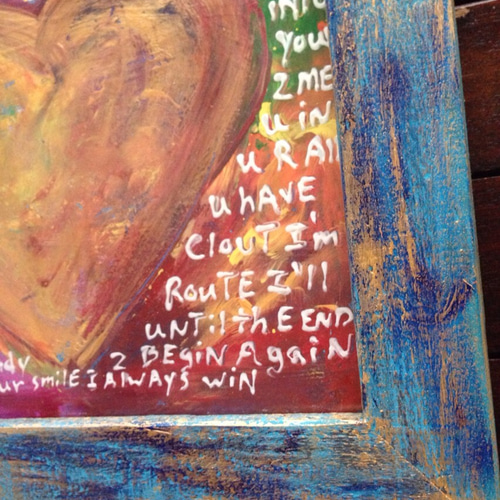 into
you
2 ME
u iN
u R All
u hAVE
Clout I'm
RouTE I'll
uNTil thE END
2 BEGiN AgaiN
ur smilE I AlWAYS WiN